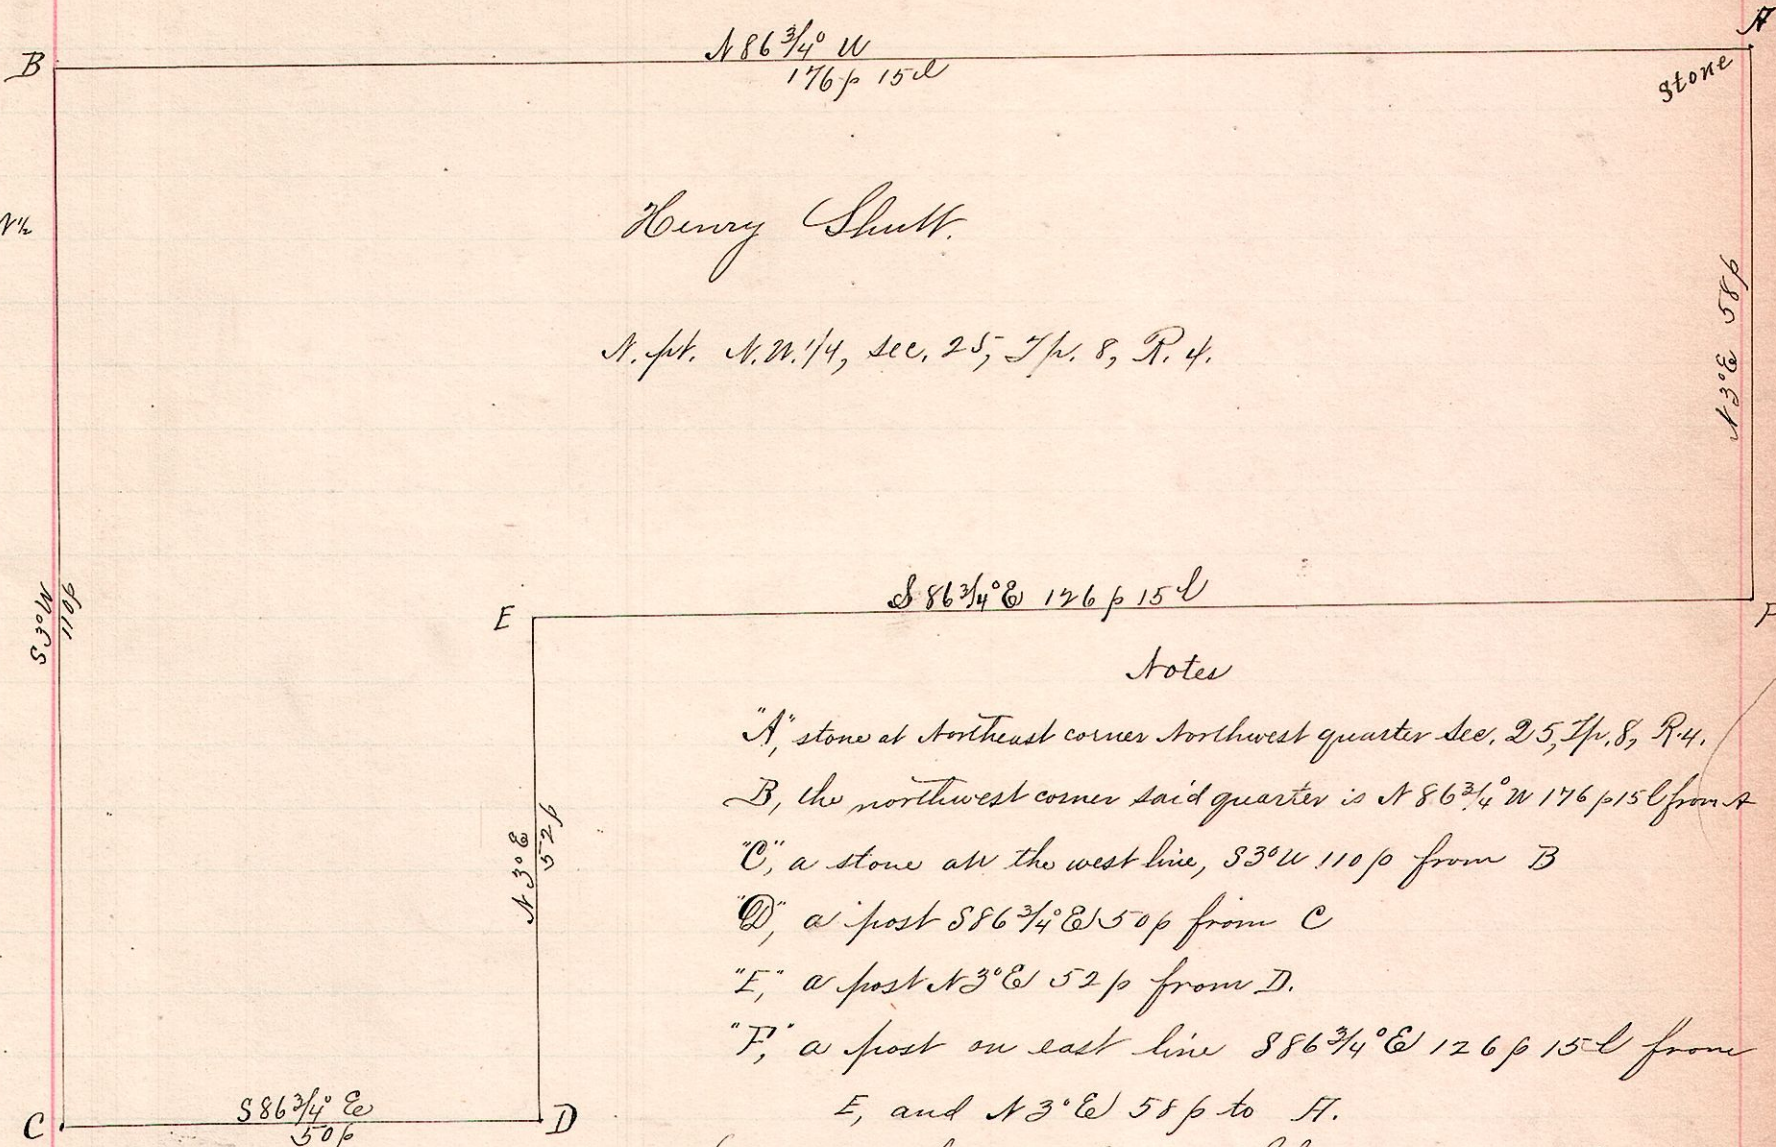 A
N 86 3/4° W
B
176 p 15 l
Stone
Henry Shutt.
N 1/2
N. pt. N.W. 1/4, sec. 25, Tp. 8, R. 4.
N 3° E 58 p
S 3° W
110 p
S 86 3/4° E 126 p 15 l
E
F
Notes
"A", stone at Northeast corner Northwest quarter Sec. 25, Tp. 8, R. 4.
B, the northwest corner said quarter is N 86 3/4° W 176 p 15 l from A
"C", a stone on the west line, S 3° W 110 p from B
"D", a post S 86 3/4° E 50 p from C
"E", a post N 3° E 52 p from D.
"F", a post on east line S 86 3/4° E 126 p 15 l from
E, and N 3° E 58 p to A.
N 3° E
52 p
S 86 3/4° E
C
D
50 p